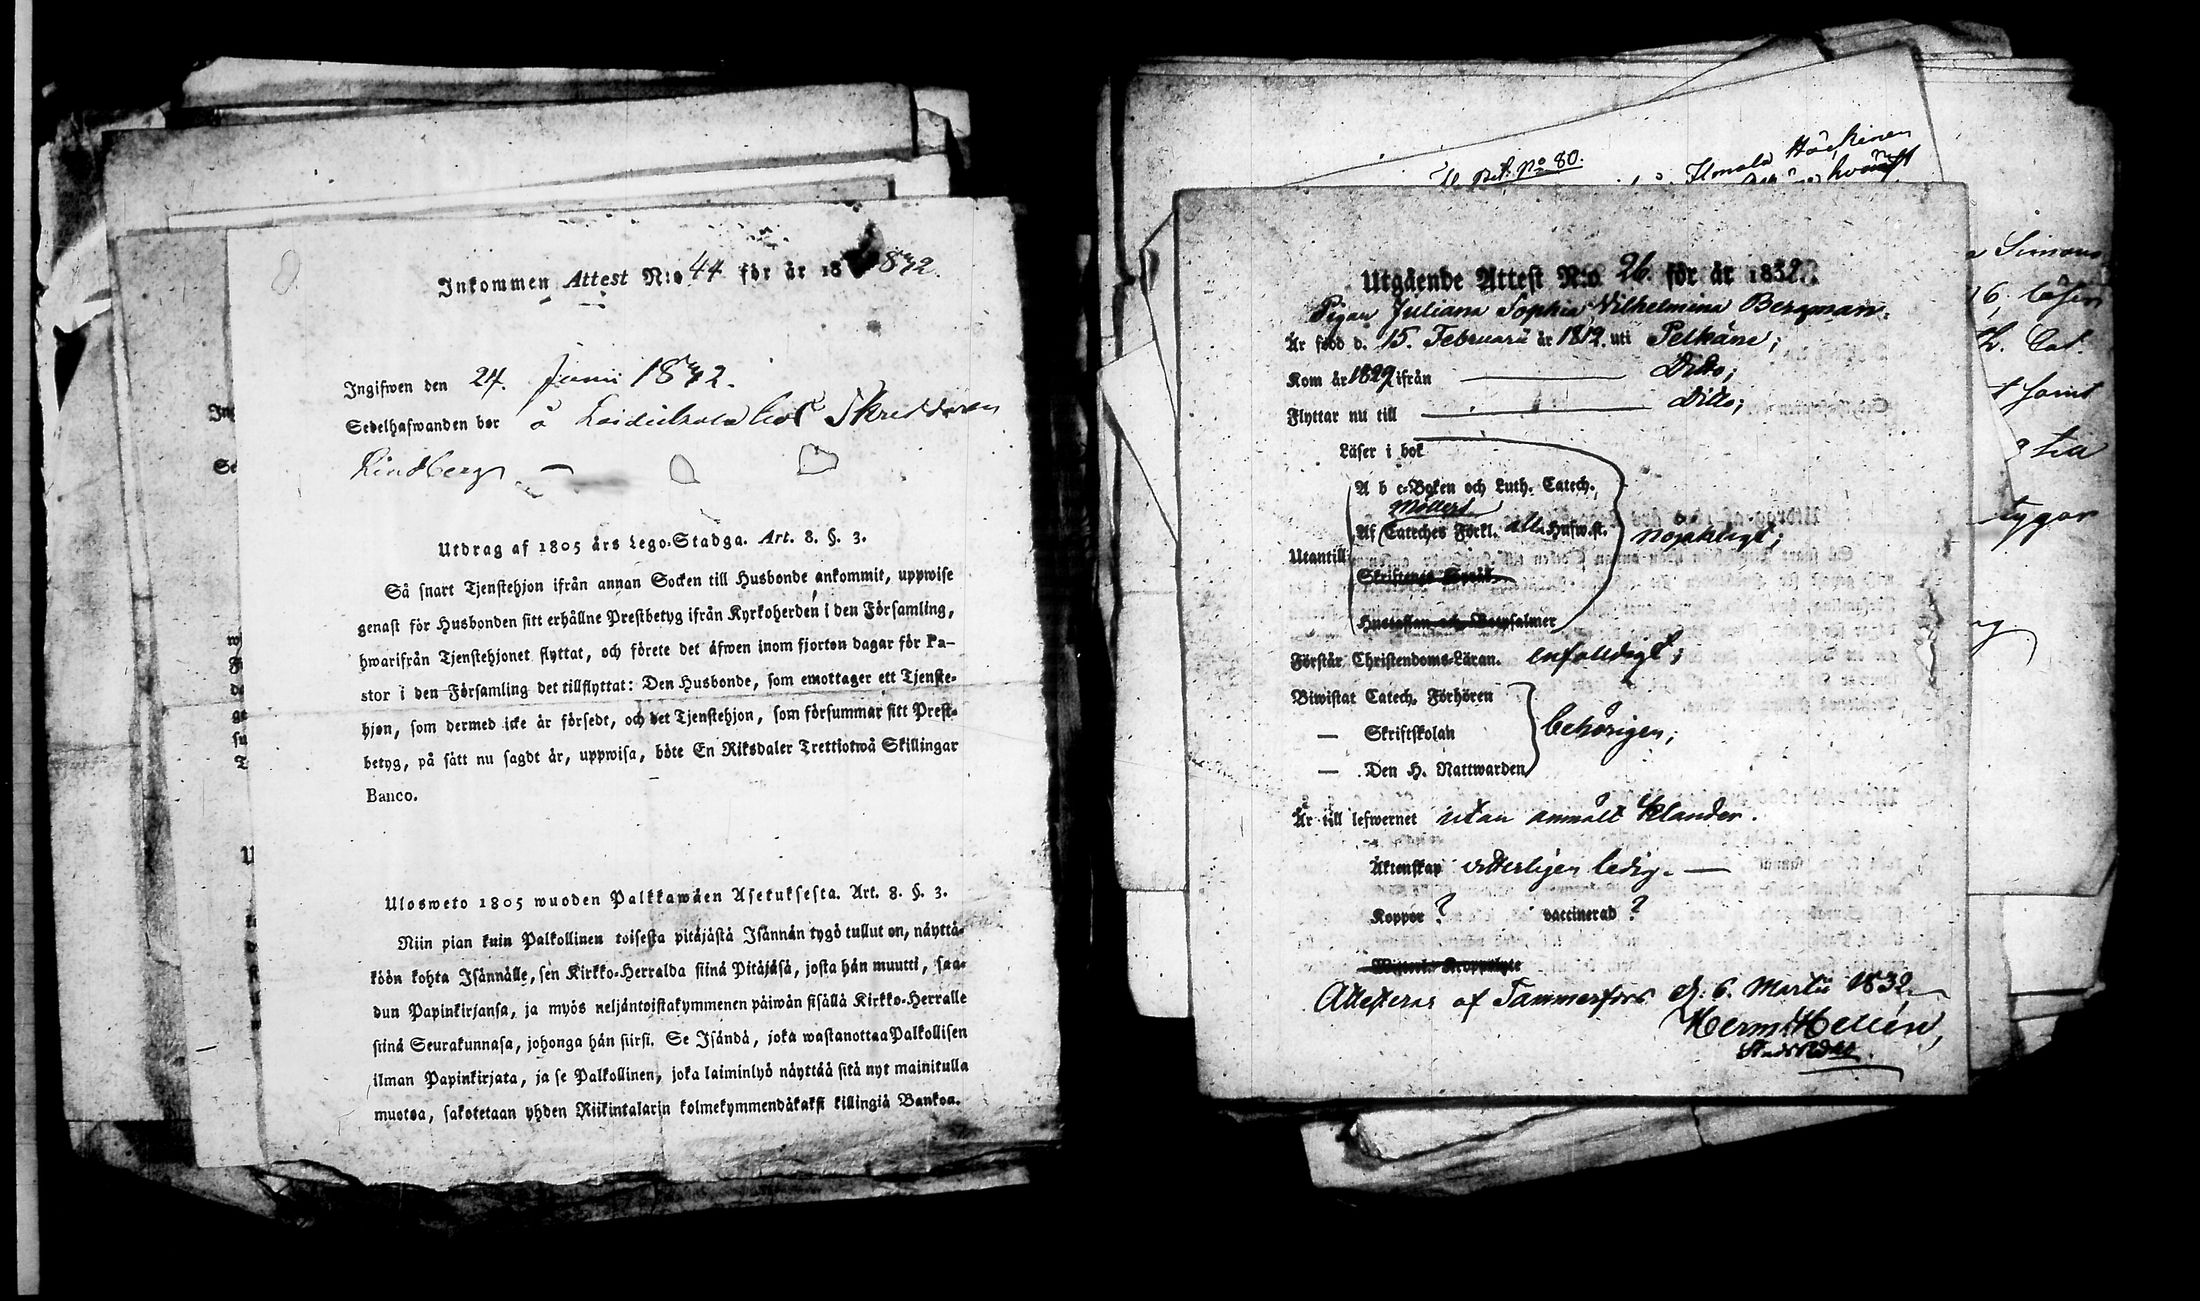 Inkommen Attest N:o 44 för år 18 1842.
Ingifwen den 24. Junii 1842.
Sedelhafwanden bor å hos Skreddaren
Lindberg —
Utdrag af 1805 års Lego-Stadga. Art. 8. §. 3.
Så snart Tjenstehjon ifrån annan Socken till Husbonde ankommit, uppwise
genast för Husbonden sitt erhållne Prestbetyg ifrån Kyrkoherden i den Församling,
hwarifrån Tjenstehjonet flyttat, och förete det äfwen inom fjorton dagar för Pa-
stor i den Församling det tillflyttat: Den Husbonde, som emottager ett Tjenste-
hjon, som dermed icke är försedt, och det Tjenstehjon, som försummar sitt Prest-
betyg, på sätt nu sagdt är, uppwisa, böte En Riksdaler Trettiotwå Skillingar
Banco.
Ulosweto 1805 wuoden Palkkawäen Asetuksesta. Art. 8. §. 3.
Niin pian kuin Palkollinen toisesta pitäjästä Isännän tygö tullut on, näyttä-
köön kohta Isännälle, sen Kirkko-Herralda siinä Pitäjäsä, josta hän muutti, saa-
dun Papinkirjansa, ja myös neljäntoistakymmenen päiwän sisällä Kirkko-Herralle
siinä Seurakunnasa, johonga hän siirsi. Se Isändä, joka wastanottaa Palkollisen
ilman Papinkirjata, ja se Palkollinen, joka laiminlyö näyttää sitä nyt mainitulla
muotoa, sakotetaan yhden Riikintalarin kolmekymmendäkaksi killingiä Bankoa.
Bet. No 80.
Utgående Attest N:o 26. för år 1832.
Pigan Juliana Sophia Vilhelmina Bergman.
Är född d. 15. Februarii år 1812. uti Pelkäne;
Kom år 1829 ifrån — Ditto;
Flyttar nu till — Ditto;
Läser i bok
A b c-Boken och Luth. Catech.
Möllers
Af Cateches Förkl. alla Hufw.st. nöjaktigt;
Utantill
Skriftenes Språk
Hustaflan och Botpsalmer
Förstår Christendoms-Läran. enfalldigt;
Biwistat Catech. Förhören
— Skriftskolan behörigen;
— Den H. Nattwarden
Är till lefwernet utan anmält klander.
Äktenskap vitterligen ledig. —
Koppor ? vaccinerad ?
Attesteras af Tammerfors d. 6. Martii 1832.
Herm. Hellén,
Simons
tygar